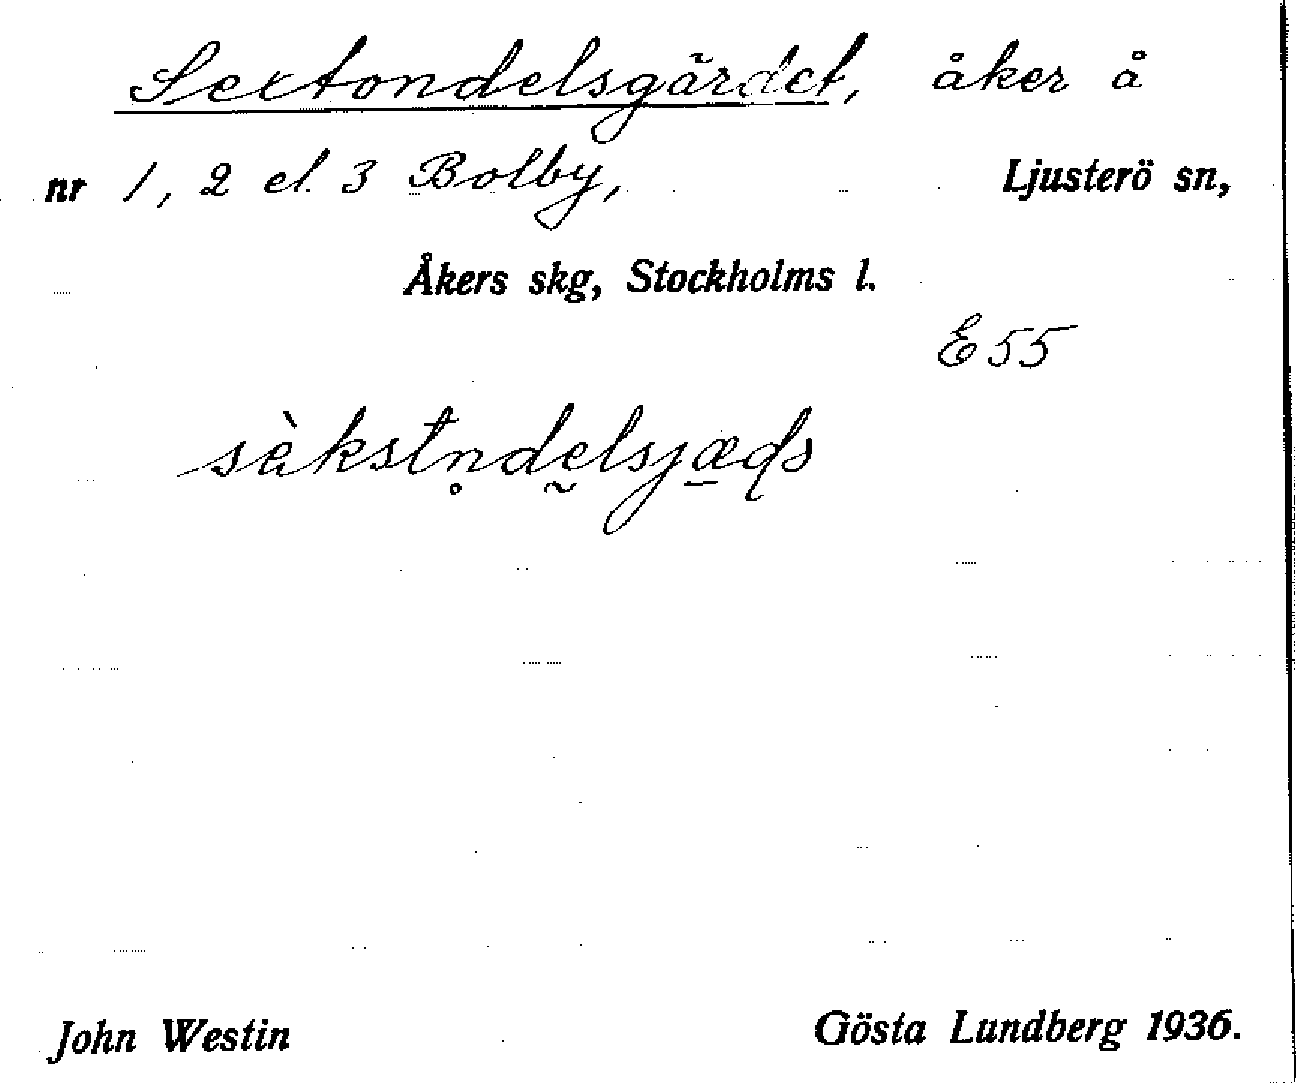 Sextondelsgärdet, åker å
nr 1, 2 el. 3 Bolby, Ljusterö sn,
Åkers skg, Stockholms l.
E 55
John Westin Gösta Lundberg 1936.